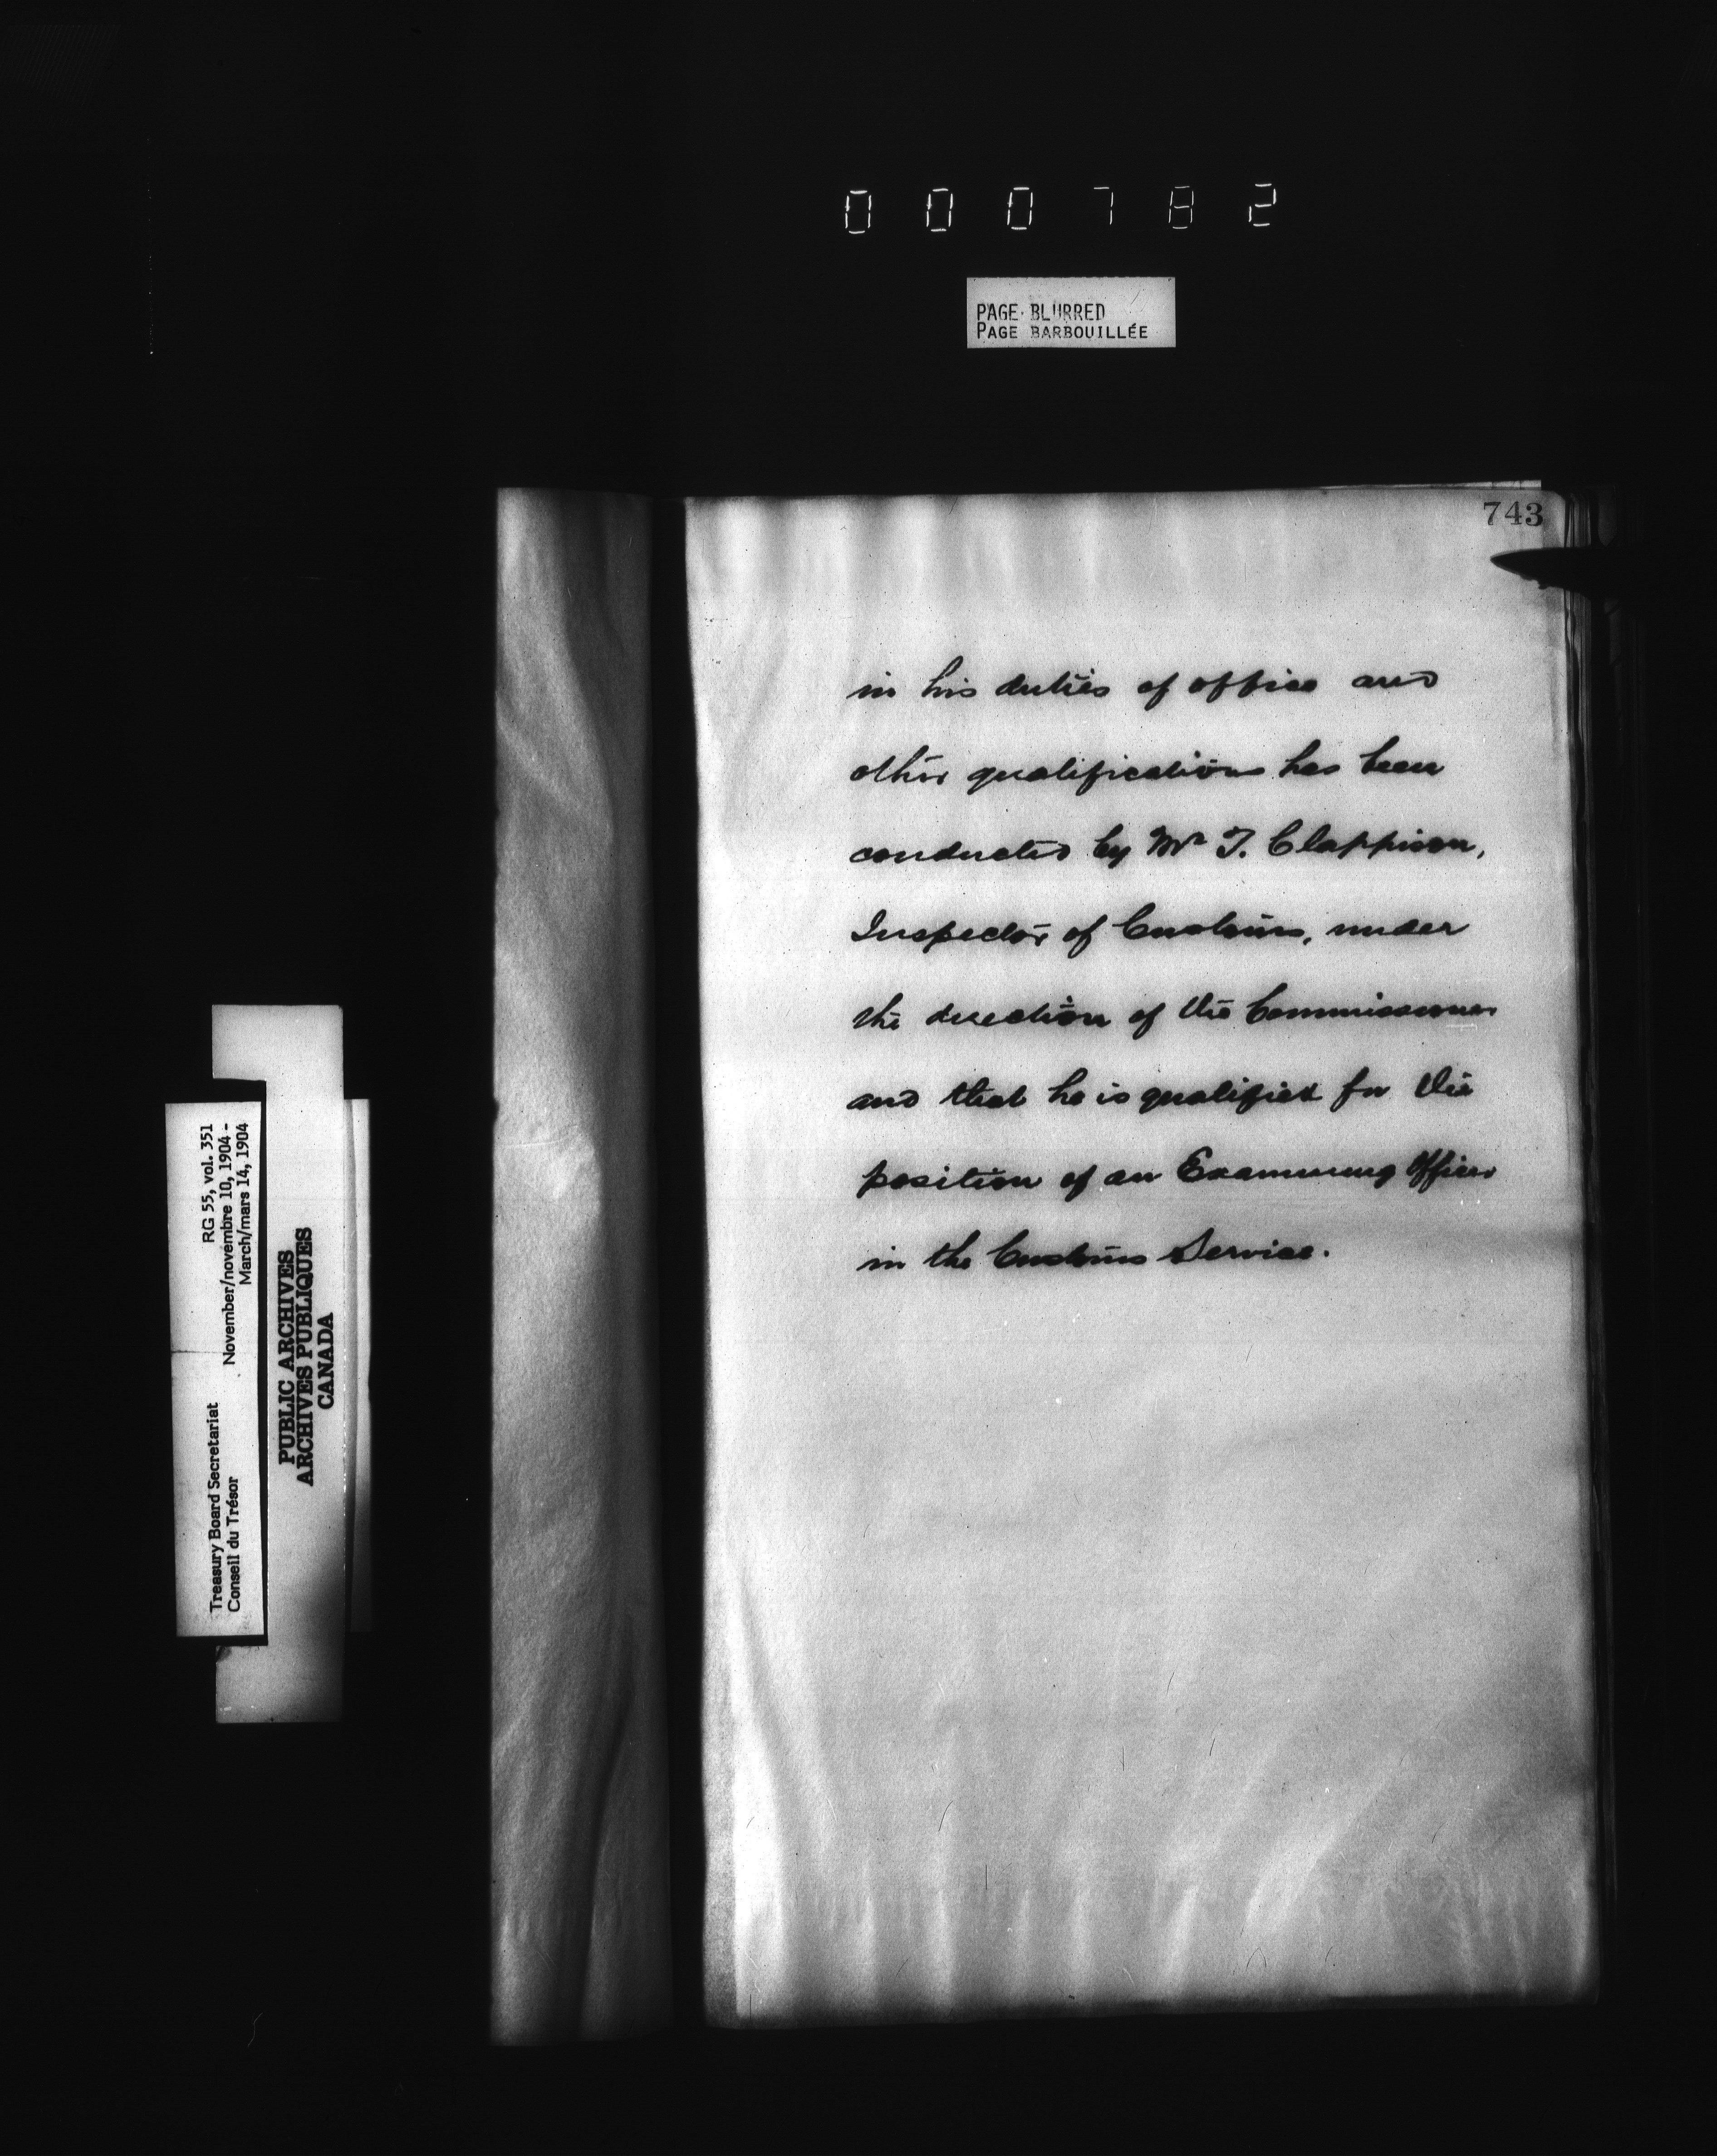 000782
PAGE BLURRED
PAGE BARBOUILLÉE
743
in his duties of office and
other qualifications has been
conducted by Mr T. Clappison,
Inspector of Customs, under
the direction of the Commissioner
and that he is qualified for the
position of an Examining Officer
in the Customs Service.
Treasury Board Secretariat RG 55, vol. 351
Conseil du Trésor November/novembre 10, 1904 -
March/mars 14, 1904
PUBLIC ARCHIVES
ARCHIVES PUBLIQUES
CANADA